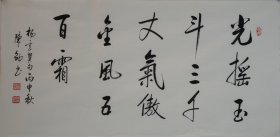 光摇玉
斗三千
丈氣傲
金風五
百霜
杨万里句丙申秋